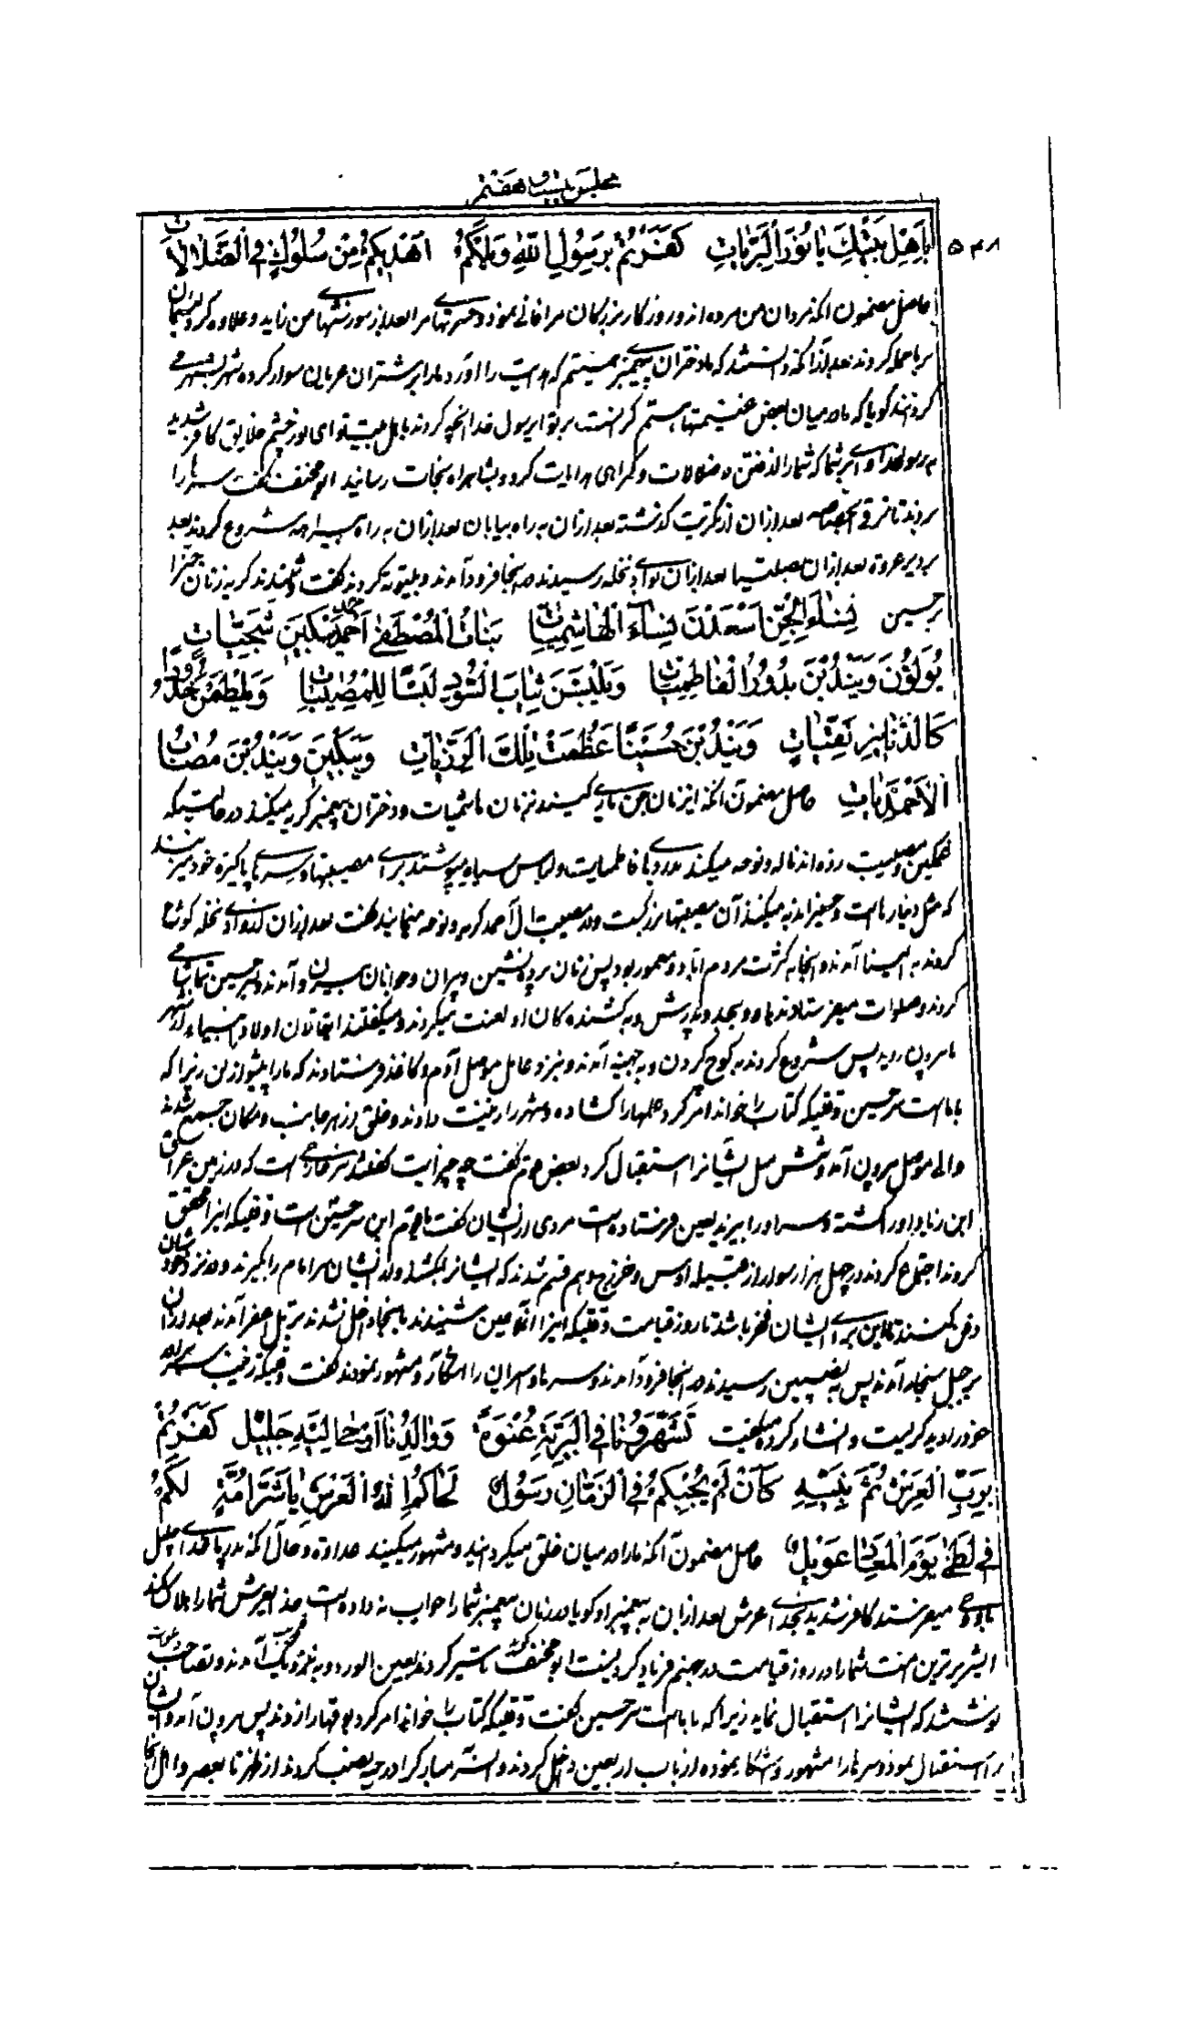 مجلس بیست و هفتم
۵۳۸
بِاَهْلِ بَیْتِکَ یا نُورَ الْبَرِیّاتِ کَفَرْتُمْ بِرَسُولِ اللّهِ وَیْلَکُمْ اَهْدیکُمْ مِنْ سُلُوكٍ فِی الضَّلالات
حاصل مضمون آنکه مردان من مرده‌اند و روزگار بزرگان مرا فانی نمود و حسرتهای مرا بعد از سوزشهای من زاید و علاوه کرد لئیمان
بر ما حمله کردند بعد از آنکه دانستند که ما دختران پیغمبر هستیم که هدایت را آورد ما را بر شتران عریان سوار کرده شهر بشهر می
گردانند گویا که ما در میان بعض غنیمتها هستیم گران است بر تو ای رسول خدا آنچه کردند باهل بیت تو ای نور چشم خلایق کافر شدید
برسول خدا وای بر شما که شما را از رفتن در ضلالات و گمراهی هدایت کرد و بشاهراه نجات رسانید ابو مخنف گفت سرها را
بردند تا شرقی الحصاصه بعد از آن از تکریت گذشته بعد از آن به راه بیابان بعد از آن به راه شروع کردند بعد
بر دیر عروة بعد از آن بصلیتا بعد از آن بوادی نخله رسیدند در آنجا فرود آمدند و بیتوته کردند گفت و شنیدند گریه زنان جن را
بر حسین نِساءُ الْجِنِّ اَسْعَدْنَ نِساءَ الْهاشِمِیّاتِ بَناتُ الْمُصْطَفی اَحْمَدَ یَبْکینَ شَجِیّاتٍ
یُوَلْوِلْنَ وَیَنْدُبْنَ بُدُورَ الْفاطِمِیّاتِ وَیَلْبِسْنَ ثِیابَ السُّودِ لُبْسًا لِلْمُصیباتِ وَیَلْطِمْنَ خُدُودًا
کَالدَّنانیرِ نَقِیّاتٍ وَیَنْدُبْنَ حُسَیْنًا عَظُمَتْ تِلْكَ الرَّزِیّاتِ وَیَبْکینَ وَیَنْدُبْنَ مُصاباتِ
الْاَحْمَدِیّاتِ حاصل مضمون آنکه این زنان جن یاری میکنند زنان هاشمیات و دختران پیغمبر گریه میکنند در حالتیکه
غمگین و مصیبت زده‌اند ناله و نوحه میکنند بدرهای فاطمیات و لباس سیاه میپوشند برای مصیبتها و سیلی بر روهای پاکیزه خود میزنند
که مثل دینارها است و حسین را ندبه میکنند آن مصیبتها بزرگست و در مصیبت آل احمد گریه و نوحه مینمایند گفت بعد از آن از وادی نخله کوچ
کردند به لینا آمدند و آنجا به کثرت مردم آباد و معمور بود پس زنان پرده نشین و پیران و جوانان بیرون آمدند و بسر حسین تماشا می
کردند و صلوات میفرستادند باو و بجد و پدرش و به کشنده‌گان او لعنت میکردند و میگفتند ای قاتلان اولاد انبیاء از شهر
ما بیرون روید پس شروع کردند به کوچ کردن و به جهینه آمدند و بنزد عامل موصل آدم و کاغذ فرستادند که ما را پیشواز کن زیرا که
با ما است سر حسین وقتیکه کتاب را خواند امر کرد علمها را گشاده و شهر را زینت دادند و خلق از هر جانب و مکان جمع شدند
والی موصل بیرون آمد و شش میل ایشانرا استقبال کرد بعض مردم گفت چه چیز است گفتند سر خارجی است که در زمین عراق
ابن زیاد او را کشته و سر او را به یزید لعین فرستاده است مردی از ایشان گفت ای مردم این سر حسین است وقتیکه این را محقق
کردند اجتماع کردند در چهل هزار سوار از قبیله اوس و خزرج و هم قسم شدند که ایشانرا بکشند و از ایشان سر امام را بگیرند و در نزد خودشان
دفن کنند تا این برای ایشان فخر باشد تا روز قیامت وقتیکه این را آن ملاعین شنیدند بآنجا داخل نشدند بر تل اعفر آمدند بعد از آن
بر جبل سنجار آمدند پس به نصیبین رسیدند در آنجا فرود آمدند و سرها و اسیران را آشکار و مشهور نمودند گفت وقتیکه زینب سر برادر
خود را دید گریست و انشاد کرده میگفت تُشَهِّرُونا فِی الْبَرِیَّةِ عُنْوَةً وَوالِدُنا اَوْحی اِلَیْهِ جَلیلُ کَفَرْتُمْ
بِرَبِّ الْعَرْشِ ثُمَّ نَبِیِّهِ کَاَنْ لَمْ یَجِئْکُمْ فِی الزَّمانِ رَسُولُ لَحاکُمْ اِلهُ الْعَرْشِ یا شَرَّ اُمَّةٍ لَکُمْ
فی لَظی یَوْمَ الْمَعادِ عَویلُ حاصل مضمون آنکه ما را در میان خلق میگردانید و مشهور میکنید عداوة و حال آنکه پدر ما خدای جلیل
باو وحی میفرستد کافر شدید بخدای عرش بعد از آن به پیغمبر او گویا در زمان پیغمبر شما را جواب نداده است خدای عرش شما را هلاک کند
ای شریرترین امت شما را در روز قیامت در جهنم فریاد کردنیست ابو مخنف گفت تا سیر کردند بعین الورد و به نزدیک آمدند و بصاحب دعوات
نوشتند که ایشانرا استقبال نماید زیرا که با ما است سر حسین گفت وقتیکه کتاب را خواند امر کرد بوقها را زدند پس بیرون آمد و ایشان
را استقبال نمود و سر ما را مشهور و آشکار نموده از باب اربعین داخل کردند و آن سر مبارک را در رحبه نصب کردند از ظهر تا بعصر و اهل آنجا